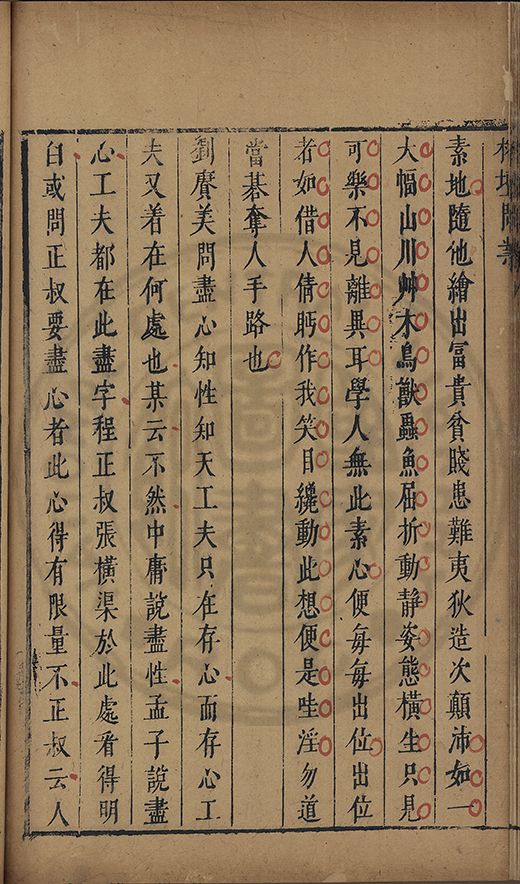 榕壇問業
素地隨他繪出富貴貧賤患難夷狄造次顛沛如一
大幅山川艸木鳥獸蟲魚屈折動静姿態橫生只見
可樂不見離異耳學人無此素心便每每出位出位
者如借人倩眄作我笑目纔動此想便是哇淫勿道
當碁奪人手路也
劉賡美問盡心知性知天工夫只在存心而存心工
夫又着在何處也某云不然中庸說盡性孟子說盡
心工夫都在此盡字程正叔張橫渠於此處看得明
白或問正叔要盡心者此心得有限量不正叔云人